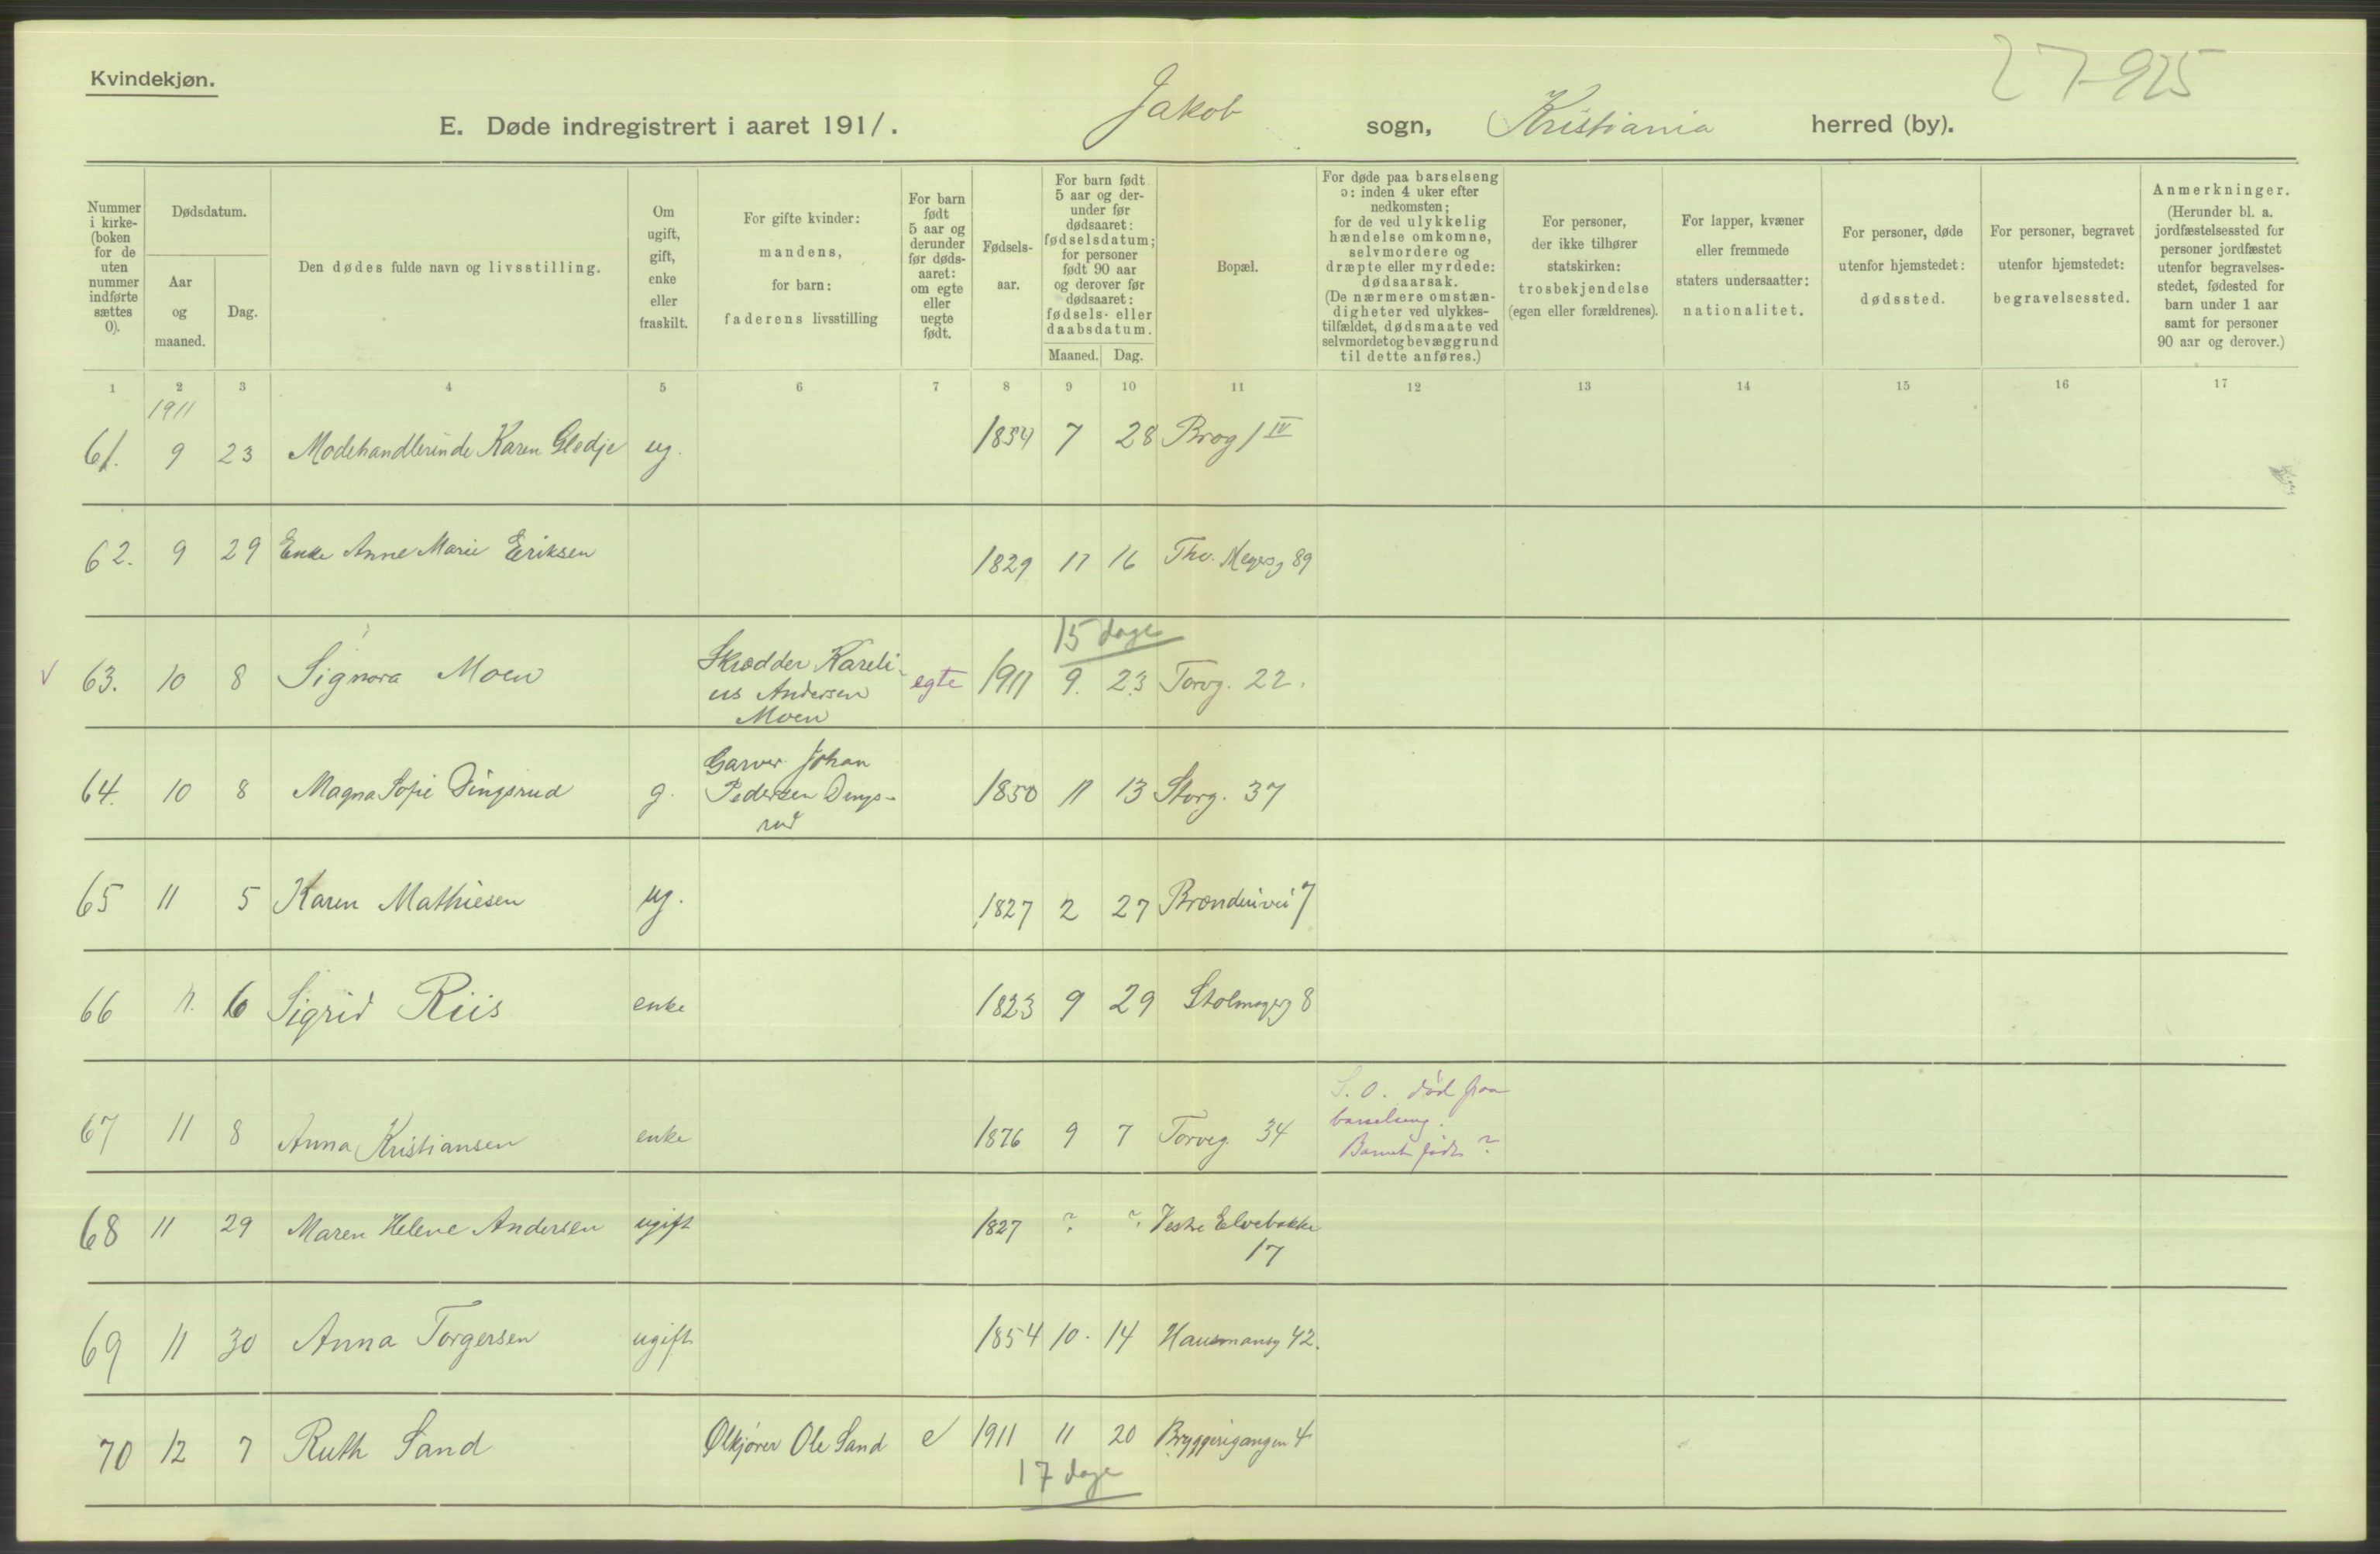 Kvindekjøn.
27-925
E. Døde indregistrert i aaret 1911. Jakob sogn, Kristiania herred (by).
Nummer i kirke- (boken for de uten nummer indførte sættes 0).
Dødsdatum.
Aar og maaned.
Dag.
Den dødes fulde navn og livsstilling.
Om ugift, gift, enke eller fraskilt.
For gifte kvinder: mandens, for barn: faderens livsstilling
For barn født 5 aar og derunder før døds- aaret: om egte eller uegte født.
Fødsels- aar.
For barn født 5 aar og der- under før dødsaaret: fødselsdatum; for personer født 90 aar og derover før dødsaaret: fødsels- eller daabsdatum.
Maaned. Dag.
Bopæl.
For døde paa barselseng ɔ: inden 4 uker efter nedkomsten; for de ved ulykkelig hændelse omkomne, selvmordere og dræpte eller myrdede: dødsaarsak. (De nærmere omstæn- digheter ved ulykkes- tilfældet, dødsmaate ved selvmordet og bevæggrund til dette anføres.)
For personer, der ikke tilhører statskirken: trosbekjendelse (egen eller forældrenes).
For lapper, kvæner eller fremmede staters undersaatter: nationalitet.
For personer, døde utenfor hjemstedet: dødssted.
For personer, begravet utenfor hjemstedet: begravelsessted.
Anmerkninger. (Herunder bl. a. jordfæstelsessted for personer jordfæstet utenfor begravelses- stedet, fødested for barn under 1 aar samt for personer 90 aar og derover.)
1 2 3 4 5 6 7 8 9 10 11 12 13 14 15 16 17
1911
61. 9 23 Modehandlerinde Karen Gledje ug. 1854 7 28 Brog 1 IV
62. 9 29 Enke Anne Marie Eriksen 1829 11 16 Thv. Meyersg 89
15 dage
√ 63. 10 8 Signora Moen Skrædder Kareli- us Andersen Moen egte 1911 9. 23 Torvg. 22.
64. 10 8 Magna Sofie Dingsrud g. Garver Johan Pedersen Dings- rud 1850 11 13 Storg. 37
65 11 5 Karen Mathiesen ug. 1827 2 27 Brænderivei 7
66 11. 6 Sigrid Riis enke 1823 9 29 Stolmagerg 8
67 11 8 Anna Kristiansen enke 1876 9 7 Torveg. 34 S. O. død paa barselseng. Barnet født ?
68 11 29 Maren Helene Andersen ugift 1827 ? ? Vestre Elvebakke 17
69 11 30 Anna Torgersen ugift 1854 10. 14 Hausmansg 42.
70 12 7 Ruth Sand Ølkjører Ole Sand e 1911 11 20 Bryggerigangen 4
17 dage